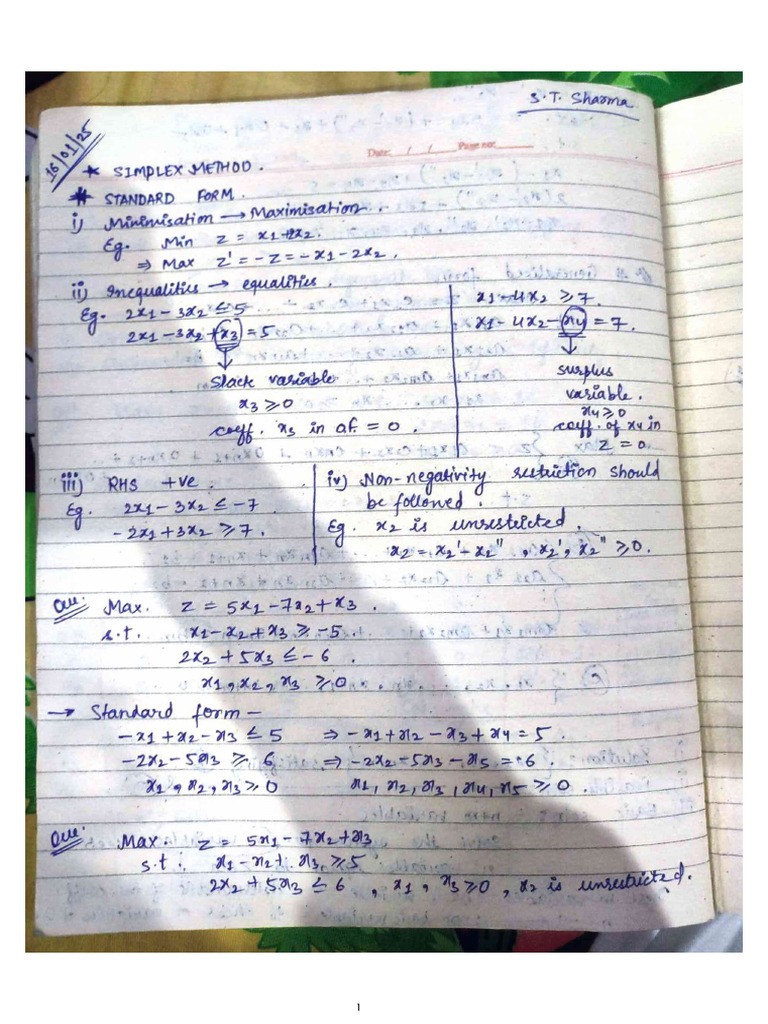 S.T. Sharma
16/01/25
Date: / / Page no:
* SIMPLEX METHOD.
# STANDARD FORM.
i) Minimisation → Maximisation.
Eg. Min z = x1+2x2.
⇒ Max z' = -z = -x1-2x2.
ii) Inequalities → equalities.
Eg. 2x1-3x2 ≤ 5
2x1-3x2+x3 = 5
Slack variable
x3 ≥ 0
coeff. x3 in o.f. = 0.
x1-4x2 ≥ 7.
x1-4x2-x4 = 7.
surplus
variable.
x4 ≥ 0
coeff. of x4 in
z = 0.
iii) RHS +ve.
Eg. 2x1-3x2 ≤ -7
-2x1+3x2 ≥ 7.
iv) Non-negativity restriction should
be followed.
Eg. x2 is unrestricted.
x2 = x2'-x2'' , x2', x2'' ≥ 0.
Que. Max. z = 5x1-7x2+x3.
s.t. x1-x2+x3 ≥ -5.
2x2+5x3 ≤ -6.
x1, x2, x3 ≥ 0
→ Standard form -
-x1+x2-x3 ≤ 5 ⇒ -x1+x2-x3+x4 = 5.
-2x2-5x3 ≥ 6 ⇒ -2x2-5x3-x5 = 6.
x1, x2, x3 ≥ 0 x1, x2, x3, x4, x5 ≥ 0.
Que. Max z = 5x1-7x2+x3
s.t. x1-x2+x3 ≥ 5
2x2+5x3 ≤ 6 , x1, x3 ≥ 0, x2 is unrestricted.
1